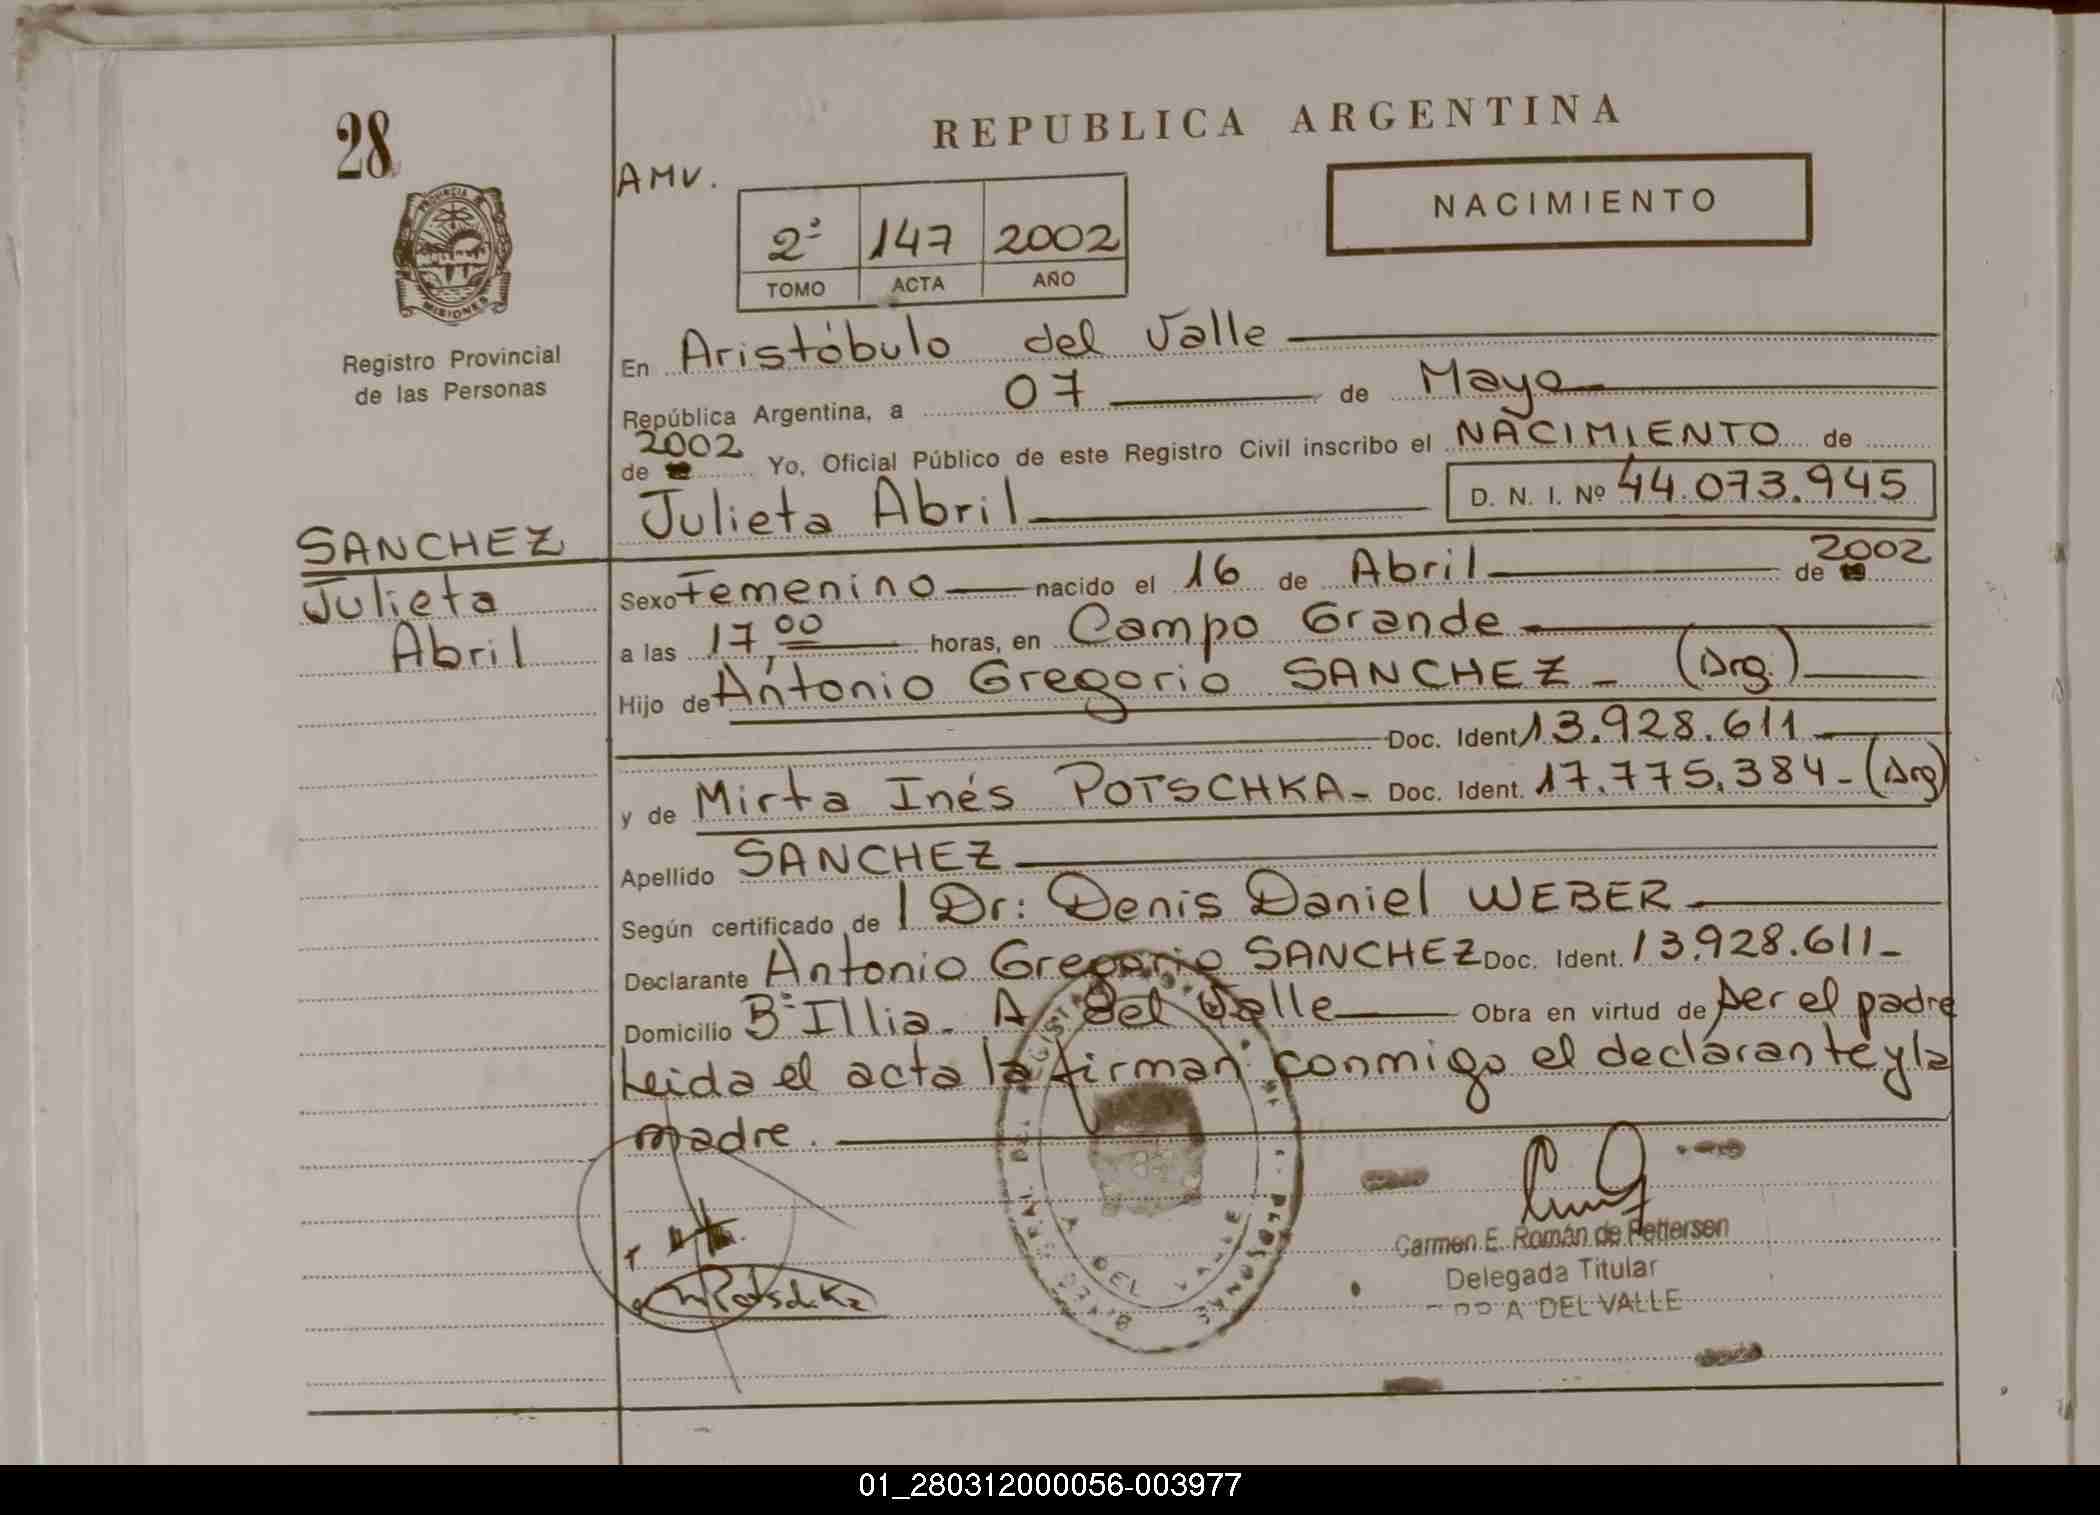 28
REPUBLICA ARGENTINA
AMV.
NACIMIENTO
2º 147 2002
TOMO ACTA AÑO
PROVINCIA DE
MISIONES
Registro Provincial
de las Personas
En Aristóbulo del Valle
República Argentina, a 07 de Mayo
de 2002 Yo, Oficial Público de este Registro Civil inscribo el NACIMIENTO de
Julieta Abril D. N. I. Nº 44.073.945
SANCHEZ
Julieta
Abril
Sexo Femenino nacido el 16 de Abril de 2002
a las 17,00 horas, en Campo Grande
Hijo de Antonio Gregorio SANCHEZ - (Arg.)
Doc. Ident 13.928.611
y de Mirta Inés POTSCHKA - Doc. Ident. 17.775.384 - (Arg)
Apellido SANCHEZ
Según certificado de l Dr: Denis Daniel WEBER
Declarante Antonio Gregorio SANCHEZ Doc. Ident. 13.928.611 -
Domicilio Bº Illia - A. del Valle Obra en virtud de ser el padre
Leida el acta la firman conmigo el declarante y la
madre.
Carmen E. Román de Pettersen
Delegada Titular
A DEL VALLE
01_280312000056-003977